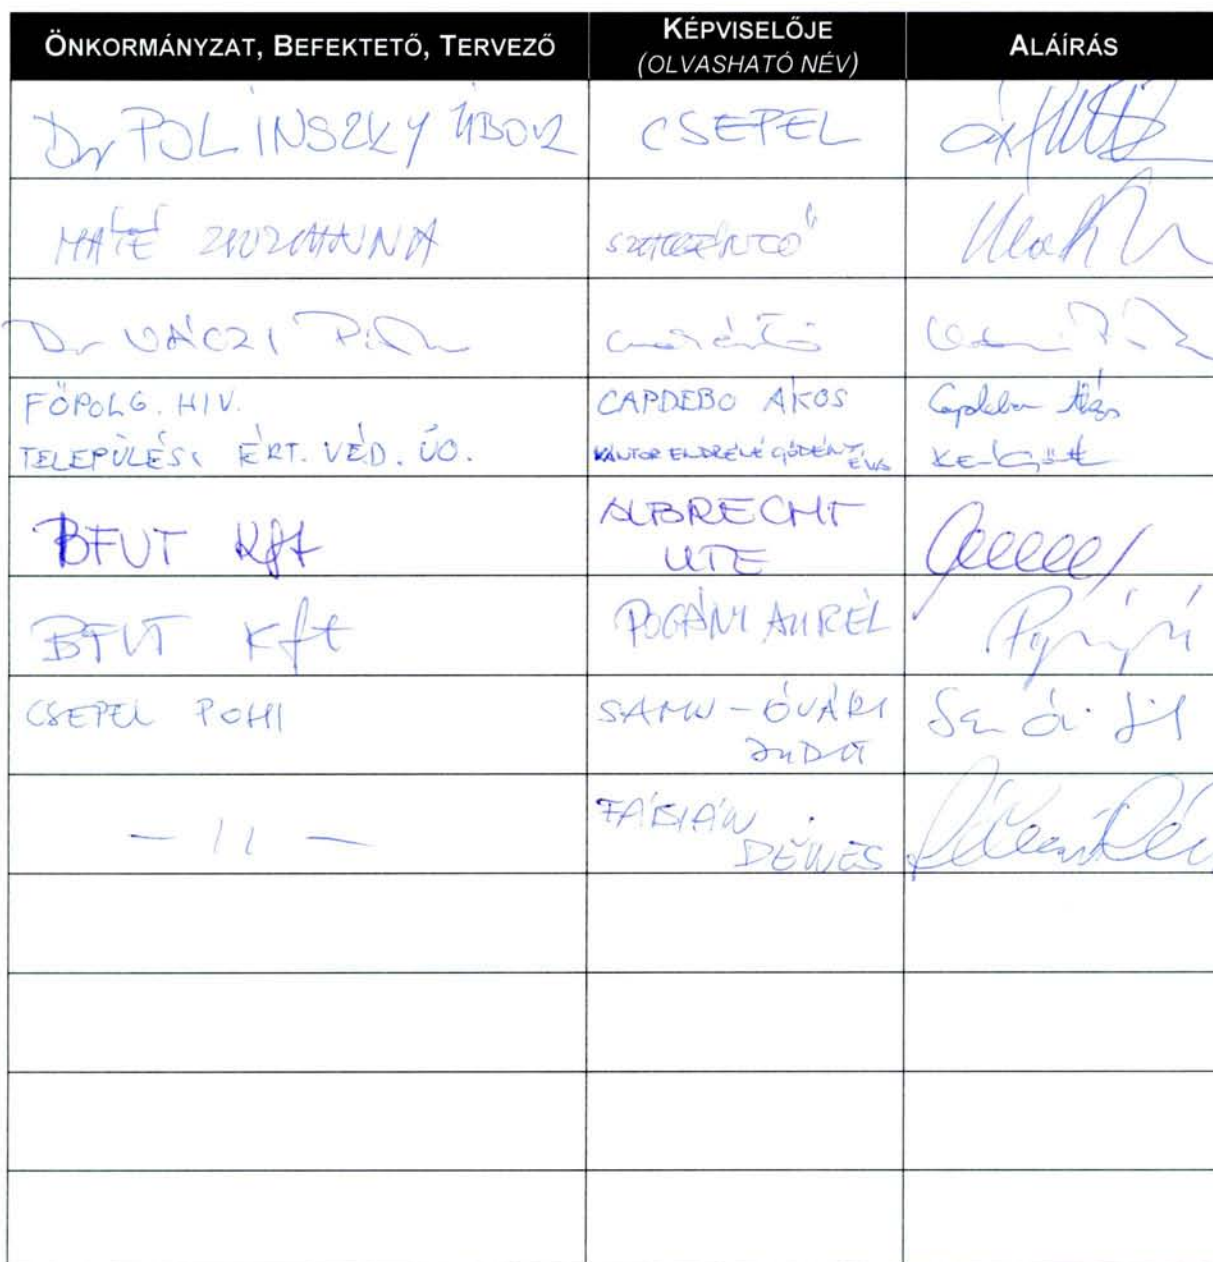 ÖNKORMÁNYZAT, BEFEKTETŐ, TERVEZŐ
KÉPVISELŐJE
(OLVASHATÓ NÉV)
ALÁÍRÁS
Dr POLINSZKY TIBOR
CSEPEL
MÁTÉ ZSUZSANNA
Dr VÁCZI
FŐPOLG. HIV.
TELEPÜLÉSI ÉRT. VÉD. ÜO.
CAPDEBO ÁKOS
KÁNTOR ENDRÉNÉ GÖDÉNY ÉVA
Capdebo Ákos
BFVT Kft
ALBRECHT
UTE
BFVT Kft
POGÁNY AURÉL
CSEPEL POHI
ÓVÁRI
JUDIT
- 11 -
FÁBIÁN
DÉNES